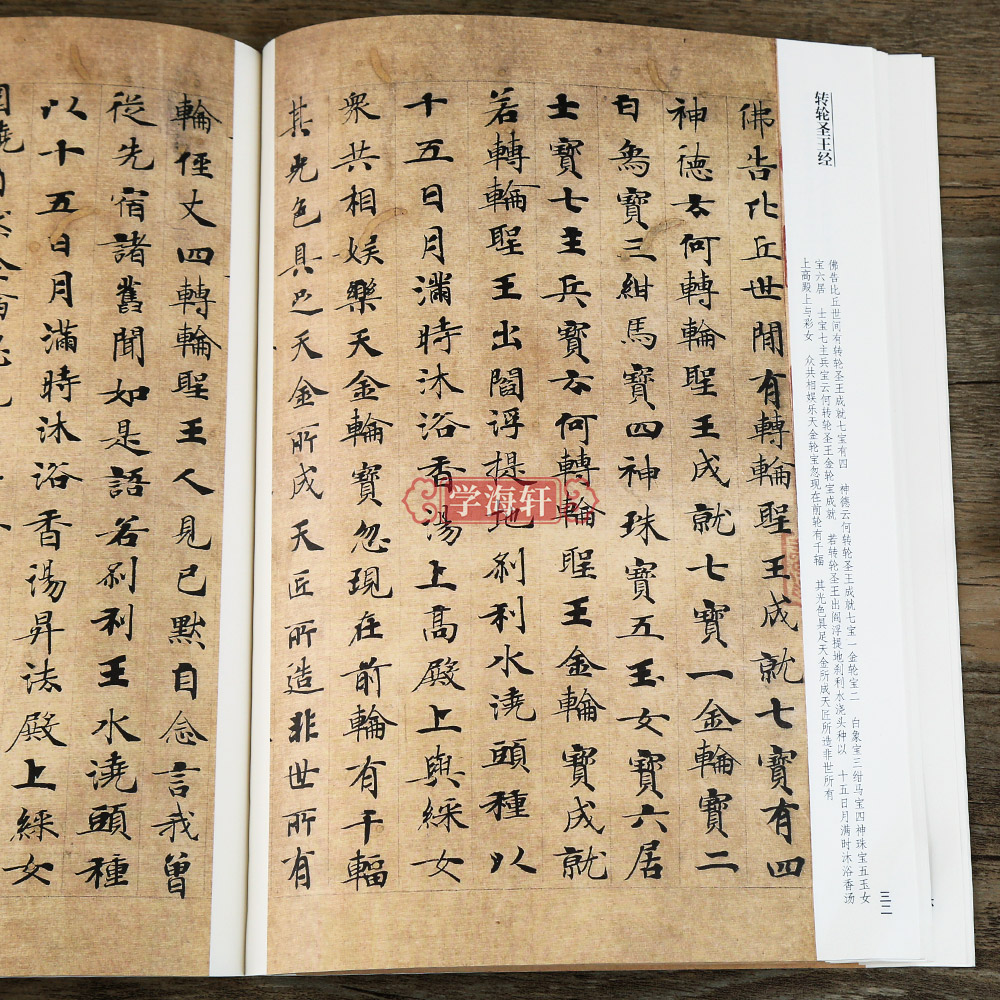 转轮圣王经
佛告比丘世间有转轮圣王成就七宝有四 神德云何转轮圣王成就七宝一金轮宝二 白象宝三绀马宝四神珠宝五玉女
宝六居 士宝七主兵宝云何转轮圣王金轮宝成就 若转轮圣王出阎浮提地刹利水浇头种以 十五日月满时沐浴香汤
上高殿上与彩女 众共相娱乐天金轮宝忽现在前轮有千辐 其光色具足天金所成天匠所造非世所有
三二
佛告比丘世間有轉輪聖王成就七寶有四
神德云何轉輪聖王成就七寶一金輪寶二
白象寶三紺馬寶四神珠寶五玉女寶六居
士寶七主兵寶云何轉輪聖王金輪寶成就
若轉輪聖王出閻浮提地刹利水澆頭種以
十五日月滿時沐浴香湯上高殿上與綵女
衆共相娛樂天金輪寶忽現在前輪有千輻
其光色具足天金所成天匠所造非世所有
輪徑丈四轉輪聖王人見已默自念言我曾
從先宿諸舊聞如是語若刹利王水澆頭種
以十五日月滿時沐浴香湯昇法殿上綵女
学海轩